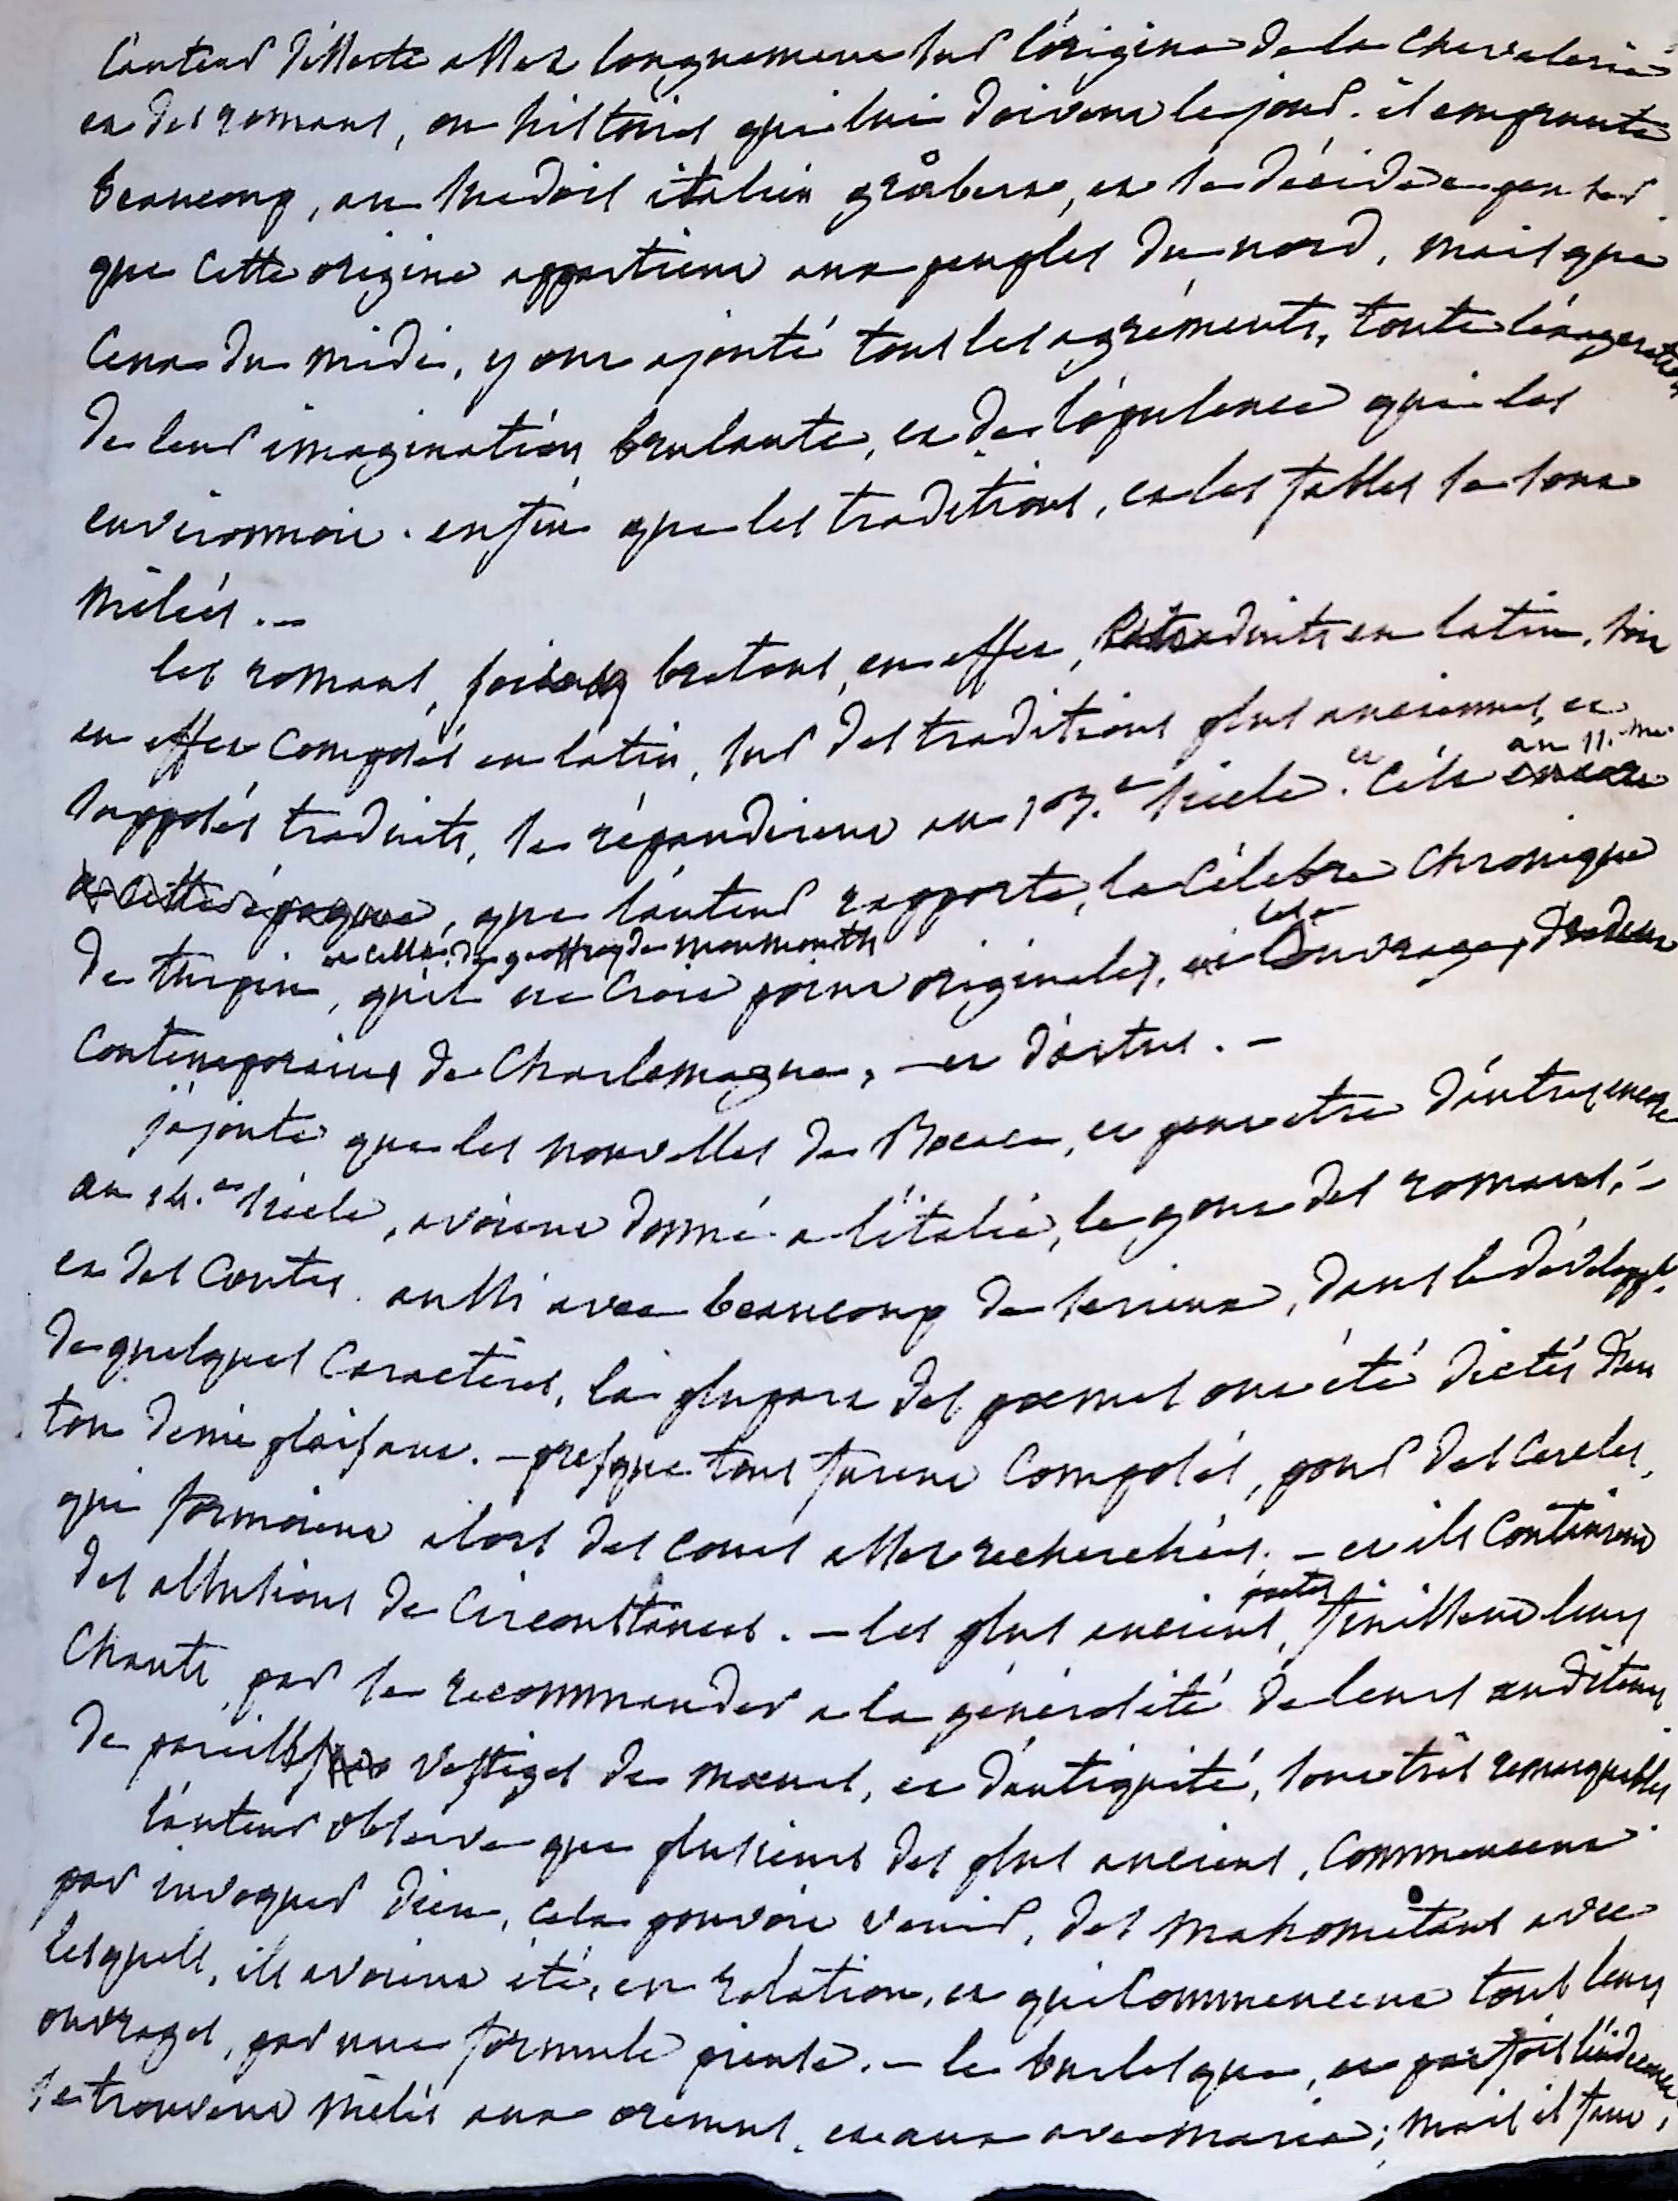 l'auteur disserte assez longuement sur l'origine de la chevalerie
et des romans, ou histoires qui lui doivent le jour. il emprunte
beaucoup, au suedois italien gråberg, et se décide a penser
que cette origine appartient aux peuples du nord, mais que
ceux du midi, y ont ajouté tous les agréments, toute l'éxageration
de leur imagination brulante, et de l'opulence qui les
environnoit. enfin que les traditions, et les fables se sont
mêlées. —
les romans, bretons, en effet, traduits en latin, soit
en effet composés en latin, sur des traditions plus anciennes, et
supposés traduits, se répandirent au siecle. et c'est au 11.me
que l'auteur rapporte, la célebre chronique
de turpin et celle de geoffroy de monmouth, qu'il ne croit point originales, ni ouvrages
contemporains de Charlemagne, — et d'artus. —
j'ajoute que les nouvelles de Bocace, et peut etre d'autres encore
au 14.e siecle, avoient donné a l'italie, le gout des romans, —
et des contes. aussi avec beaucoup de serieux, dans le dévelopt.
de quelques caractères, la plupart des poemes ont été dictés d'un
ton demi plaisant. — presque tous furent composés, pour des cercles,
qui formoient alors des cours assez recherchées. — et ils contiennent
des allusions de circonstances. — les plus anciens poetes, finissent leurs
chants, par se recommander a la générosité de leurs auditeurs
de pareils vestiges de moeurs, et d'antiquité, sont très remarquables
l'auteur observe que plusieurs des plus anciens, commencent
par invoquer dieu, cela pouvoit venir, des mahométans avec
lesquels, ils avoient été, en relation, et qui commencent tous leurs
ouvrages, par une formule pieuse. — le burlesque, et parfois l'indecence
se trouvent mêlés aux oremus, et aux ave maria; mais il faut,